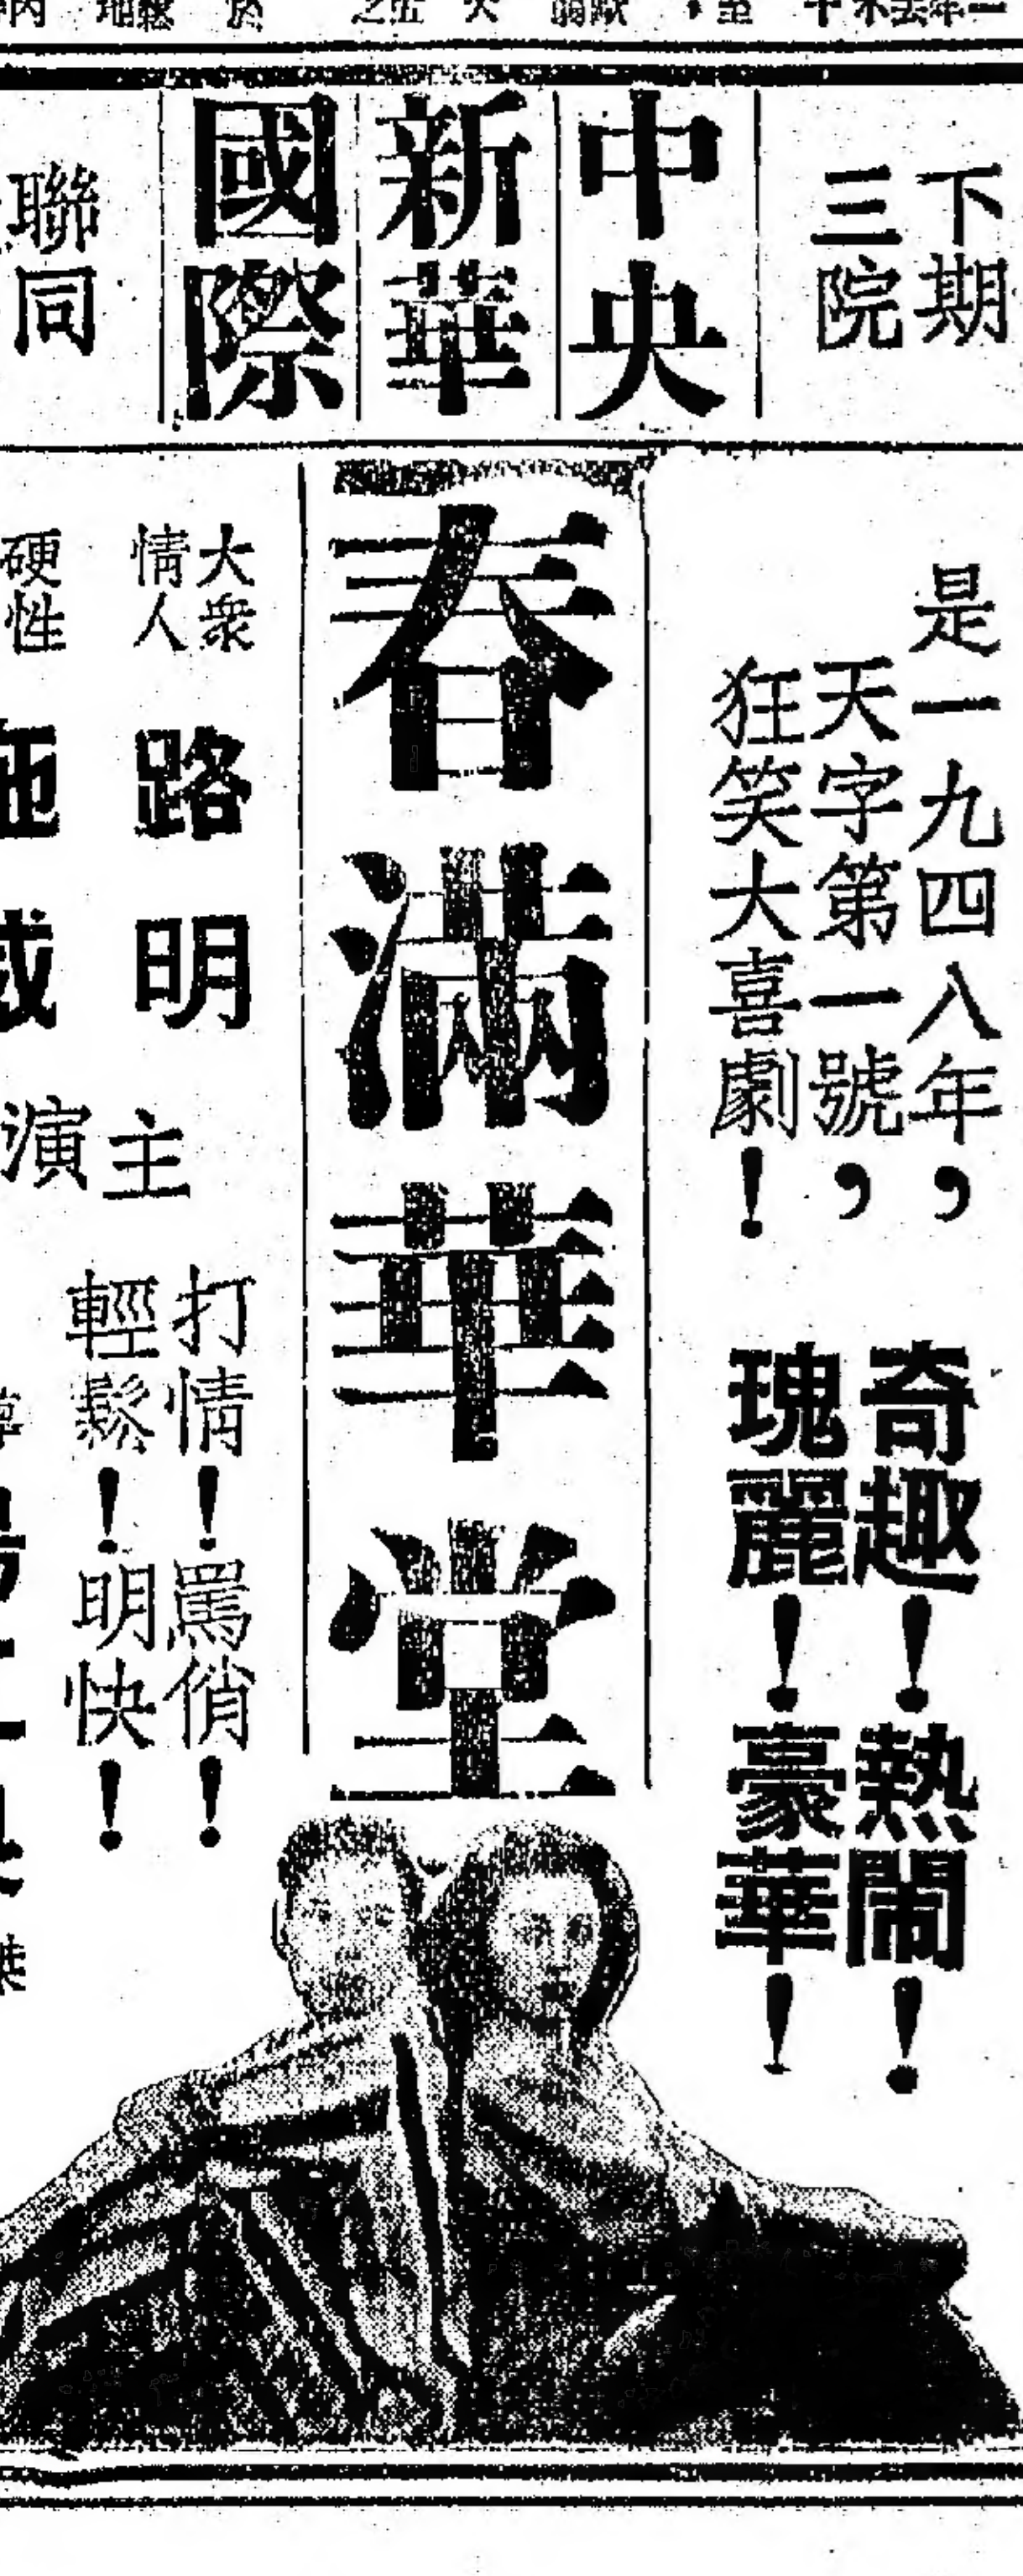 下期
三院
中央
新華
國際
聯同
是一九四八年，
天字第一號，
狂笑大喜劇！
奇趣！熱鬧！
瑰麗！豪華！
春滿華堂
大衆
情人
路明
硬性
主演
打情！罵俏！
輕鬆！明快！